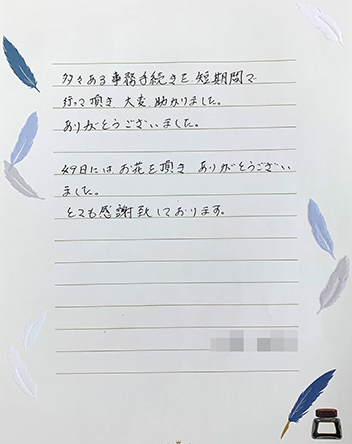 多々ある事務手続きを、短期間で
行って頂き、大変、助かりました。
ありがとうございました。
49日にはお花を頂き ありがとうござい
ました。
とても感謝致しております。